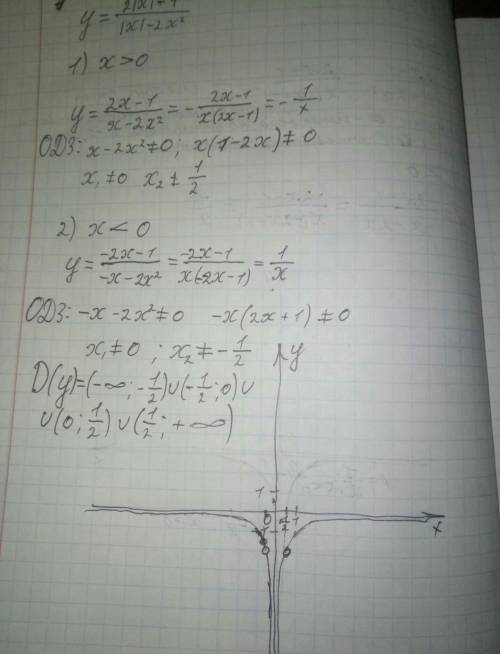 y = \frac{2|x|-1}{|x|-2x²}
1) x > 0
y = \frac{2x-1}{x-2x²} = -\frac{2x-1}{x(2x-1)} = -\frac{1}{x}
ОДЗ: x-2x²≠0; x(1-2x)≠0
x₁≠0 x₂≠\frac{1}{2}
2) x < 0
y = \frac{-2x-1}{-x-2x²} = \frac{-2x-1}{x(-2x-1)} = \frac{1}{x}
ОДЗ: -x-2x²≠0 -x(2x+1)≠0
x₁≠0; x₂≠-\frac{1}{2}
y
D(y)=(-∞;-\frac{1}{2})∪(-\frac{1}{2};0)∪
∪(0;\frac{1}{2})∪(\frac{1}{2};+∞)
1
0 \frac{1}{2} 1 x